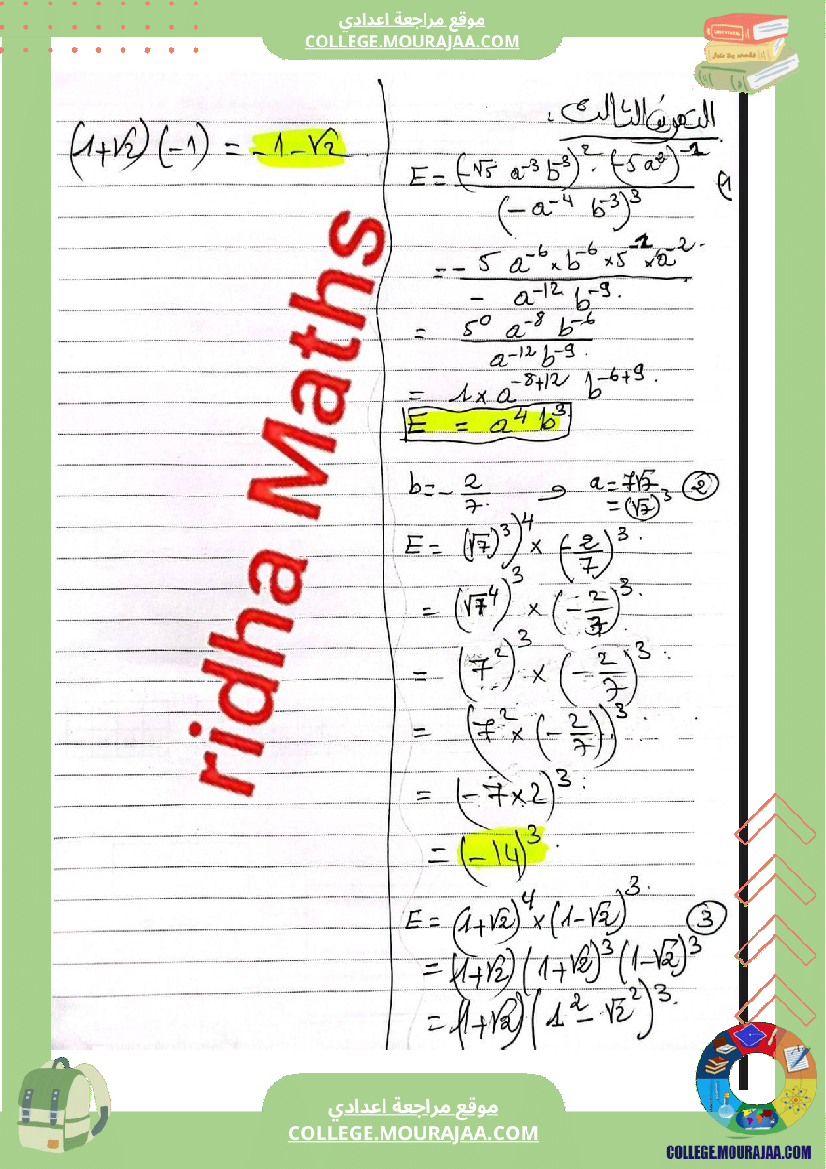 موقع مراجعة اعدادي
COLLEGE.MOURAJAA.COM
التمرين الثالث :
1) E = ((-√5 a⁻³ b⁻³)² · (-5a²)⁻¹) / (-a⁻⁴ b⁻³)³
= - (5 a⁻⁶ × b⁻⁶ × 5⁻¹ × a⁻²) / (- a⁻¹² b⁻⁹)
= (5⁰ a⁻⁸ b⁻⁶) / (a⁻¹² b⁻⁹)
= 1 × a⁻⁸⁺¹² b⁻⁶⁺⁹
E = a⁴ b³
② a = 7√7 = (√7)³ و b = -2/7
E = ((√7)³)⁴ × (-2/7)³
= (√7⁴)³ × (-2/7)³
= (7²)³ × (-2/7)³
= (7² × (-2/7))³
= (-7×2)³
= (-14)³
③ E = (1+√2)⁴ × (1-√2)³
= (1+√2) (1+√2)³ (1-√2)³
= (1+√2) (1² - √2²)³
(1+√2) (-1) = -1-√2
ridha Maths
موقع مراجعة اعدادي
COLLEGE.MOURAJAA.COM
COLLEGE.MOURAJAA.COM